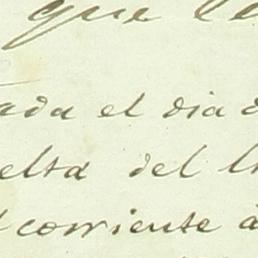 que
ada el dia d
elta del l
corriente a